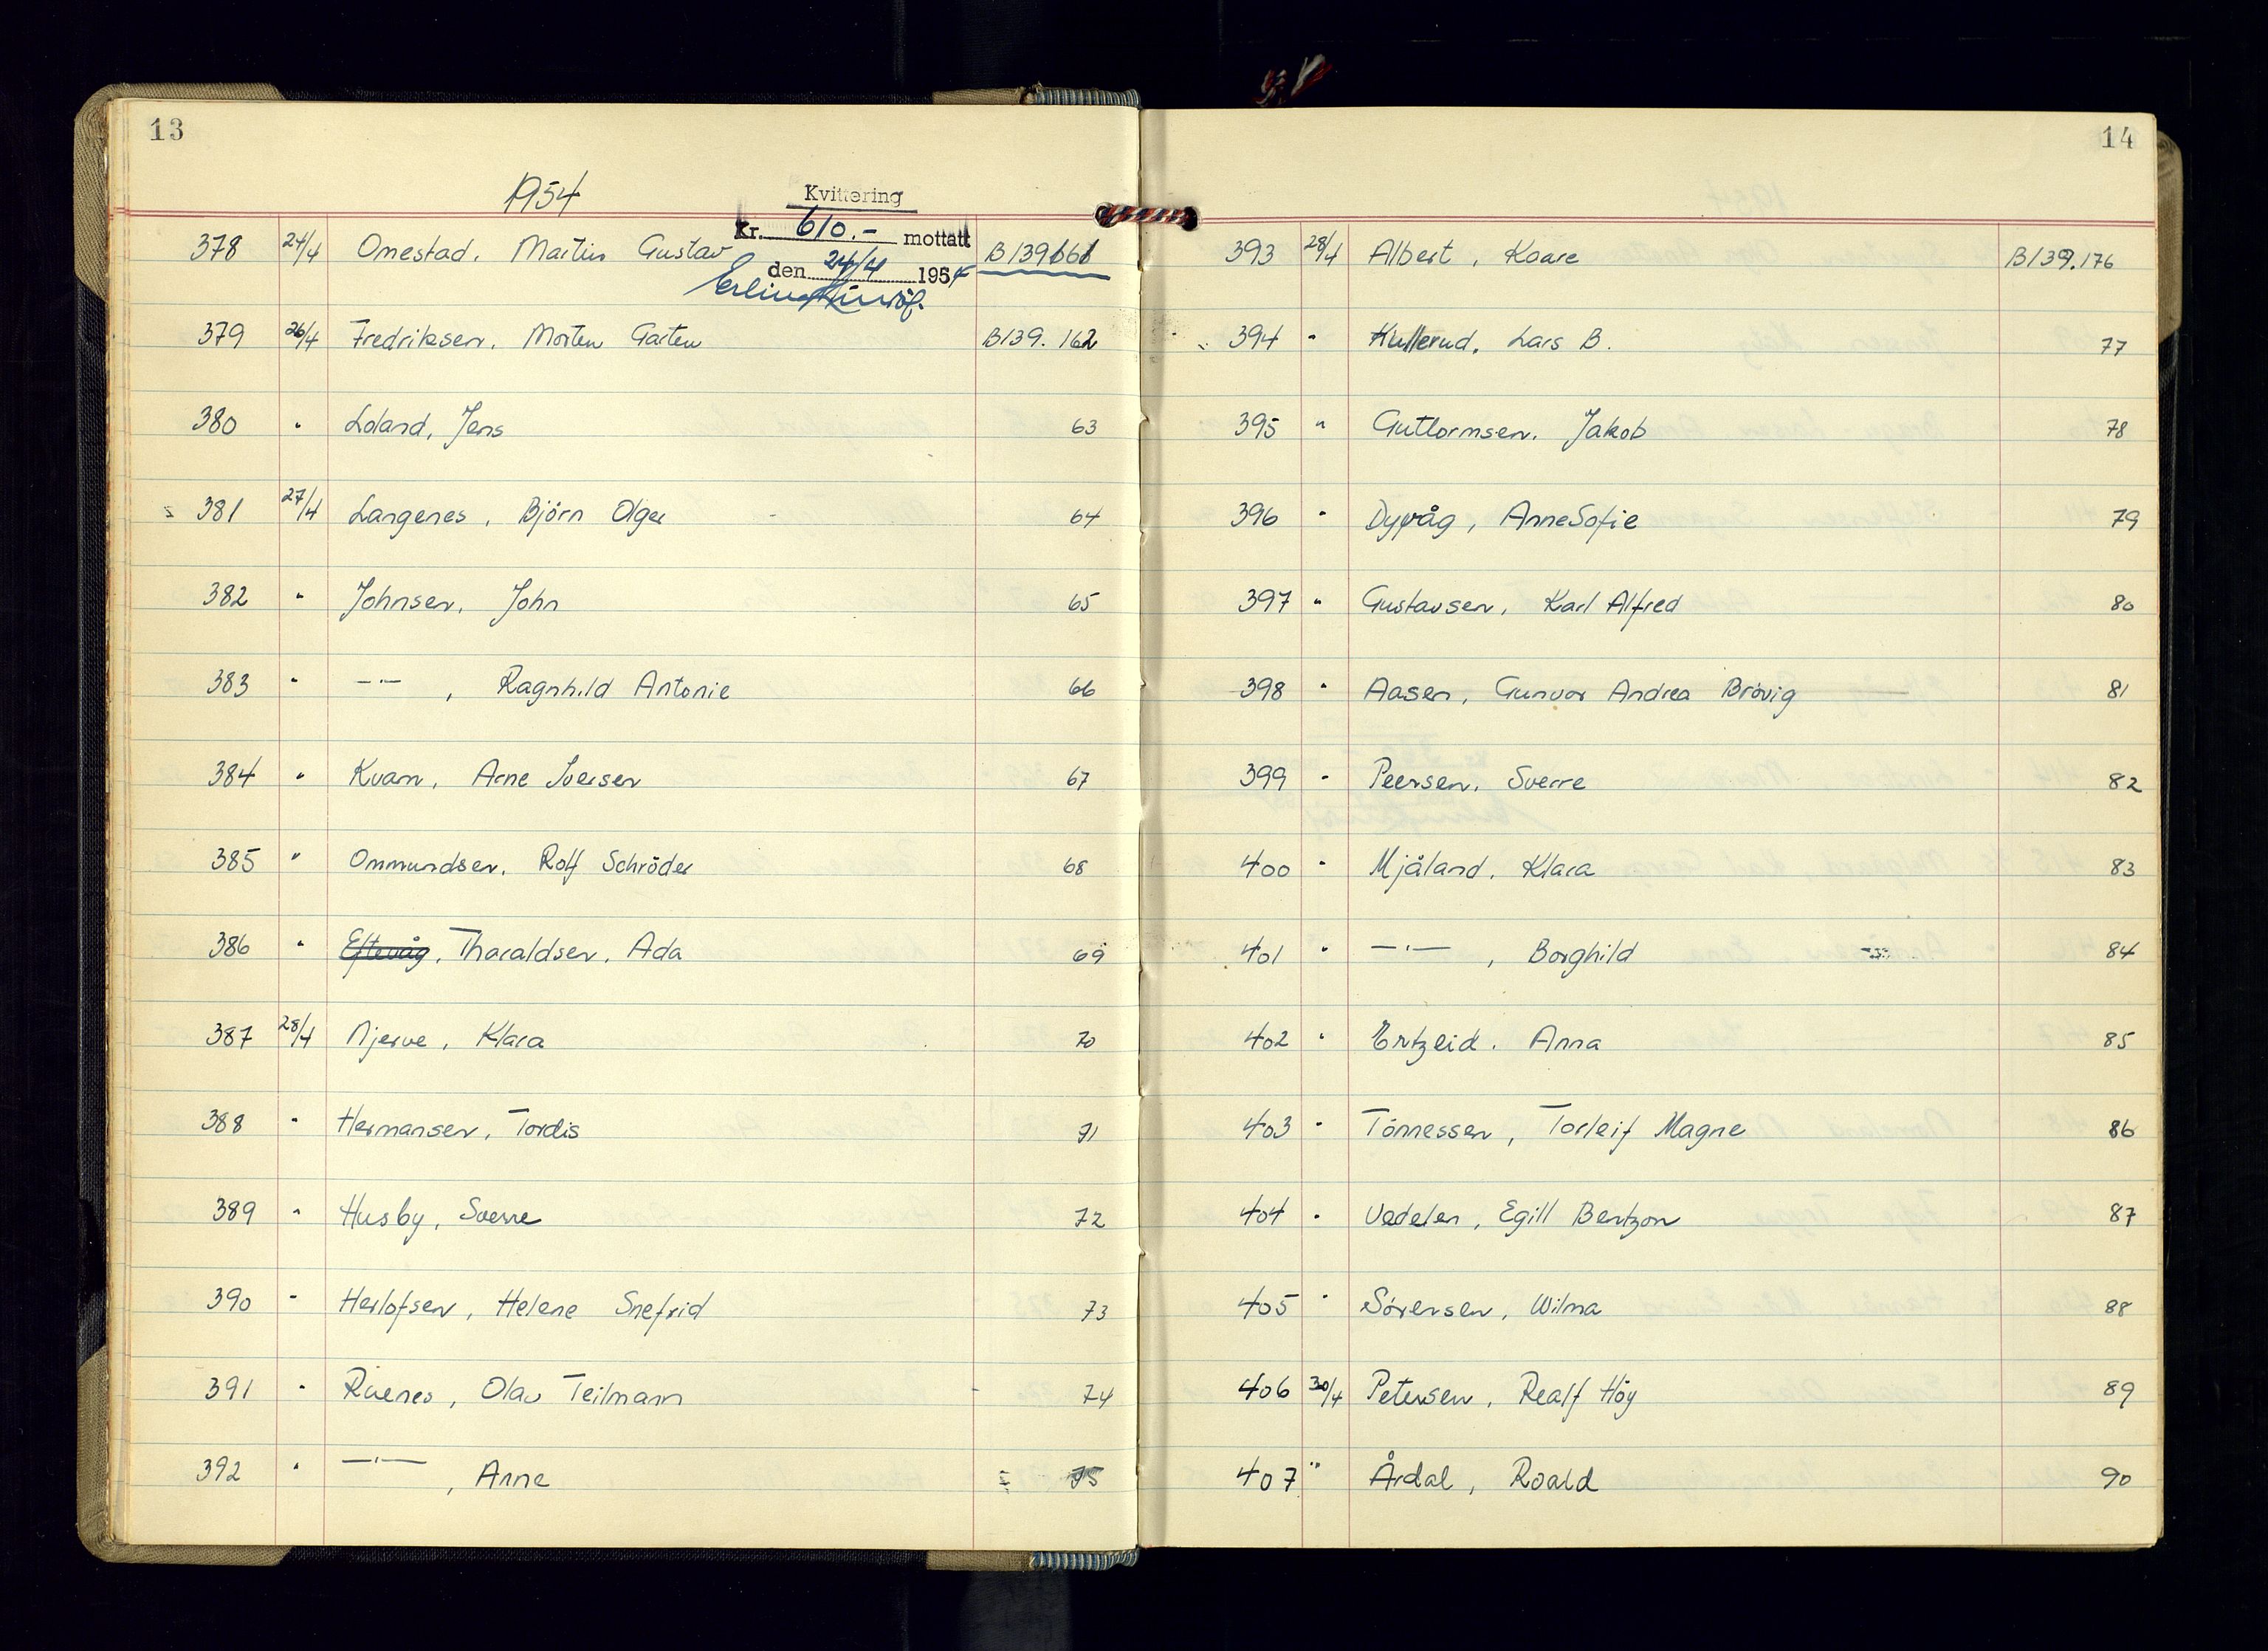 13
1954
Kvittering
Kr. 610.- mottatt
378 24/4 Omestad, Martin Gustav B139161
den 24/4 1954
379 26/4 Fredriksen, Morten Garten B139.162
380 " Loland, Jens 63
381 27/4 Langenes, Björn Olger 64
382 " Johnsen, John 65
383 " —"— , Ragnhild Antonie 66
384 " Kvam, Arne Iversen 67
385 " Ommundsen, Rolf Schröder 68
386 " Eftevåg, Tharaldsen, Ada 69
387 28/4 Njerve, Klara 70
388 " Hermansen, Tordis 71
389 " Husby, Sverre 72
390 " Herlofsen, Helene Snefrid 73
391 " Ruenes, Olav Teilmann 74
392 " —"— , Anne 75
14
393 28/4 Albert, Kaare B139.176
394 " Kullerud, Lars B. 77
395 " Guttormsen, Jakob 78
396 " Dypvåg, Anne Sofie 79
397 " Gustavsen, Karl Alfred 80
398 " Aasen, Gunvor Andrea Brøvig 81
399 " Peersen, Sverre 82
400 " Mjåland, Klara 83
401 " —"— , Borghild 84
402 " Ertzeid, Anna 85
403 " Tönnessen, Torleif Magne 86
404 " Vedeler, Egill Bentzon 87
405 " Sörensen, Wilma 88
406 30/4 Petersen, Realf Höy 89
407 " Årdal, Roald 90